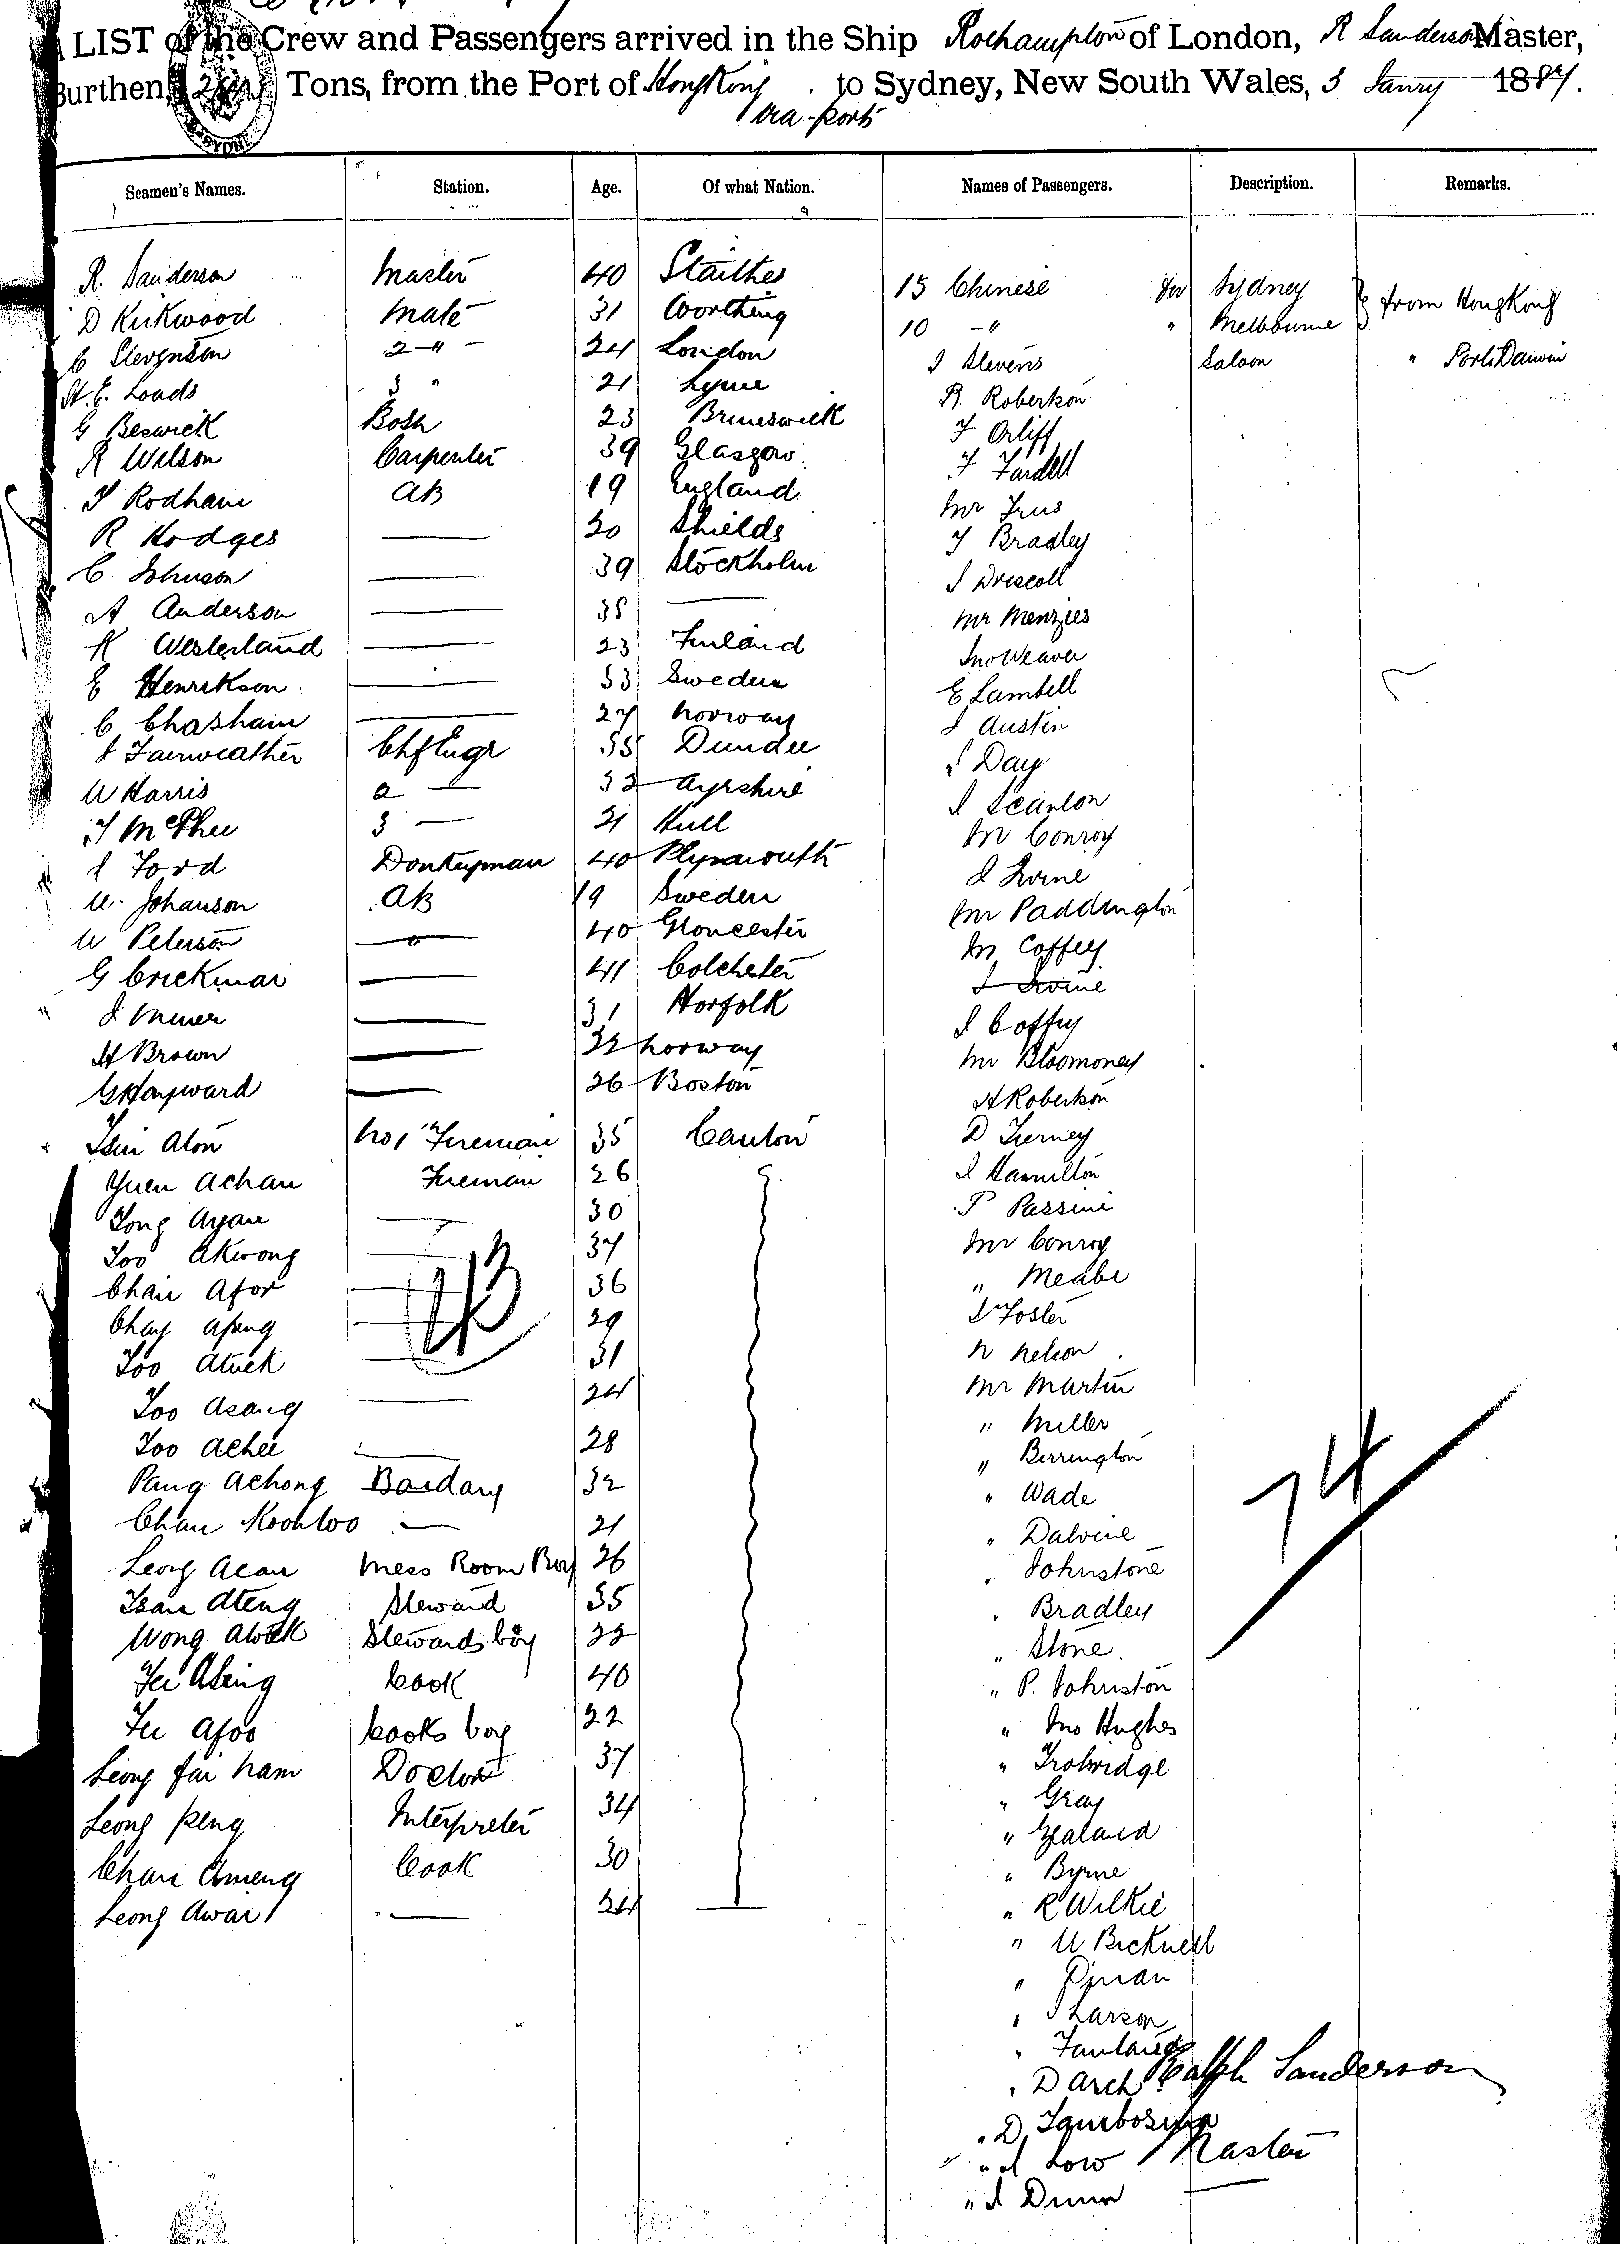 LIST of the Crew and Passengers arrived in the Ship Rochampton of London, R Sanderson Master,
Burthen, Tons, from the Port of HongKong to Sydney, New South Wales, 3 Janry 1887.
via ports
Seamen's Names. Station. Age. Of what Nation. Names of Passengers. Description. Remarks.
R. Sanderson Master 40 Staithes 15 Chinese for Sydney from HongKong
D Kirkwood Mate 31 Worthing 10 " " Melbourne
C Stevenson 2 " 24 London J Stevens Saloon " Port Darwin
H. E. Loads 3 " 21 Lyme R. Robertson
G Beswick Bosn 23 Brunswick F Orliff
R Wilson Carpenter 39 Glasgow F Fardell
J Rodham AB 19 England Mr
R Hodges 20 Shields J Bradley
C. Johnson 39 Stockholm J Driscoll
A Anderson 38 Mr Menzies
K Westerland 23 Finland Jno Weaver
E Henrikson 33 Sweden E Lambell
C Chasham 27 Norway J Austin
J Fairweather Chf Engr 35 Dundee J Day
W Harris 2 32 Ayrshire J Scanlon
J McPhee 3 21 Hull M Conroy
J Ford Donkeyman 40 Plymouth J Irvine
W. Johanson AB 19 Sweden Mr Paddington
W Peterson 40 Gloucester M Coffey
G Crickmar 41 Colchester J Irvine
J Miner 31 Norfolk J Coffey
H Brown 22 Norway Mr Bloomoney
G Haywward 26 Boston A Robertson
Tsin Aton No 1 Fireman 35 Canton D Tierney
Yuen Achan Fireman 26 J Hamilton
Tong Ayau 30 P Passini
Too Akwong 37 Mr Conroy
Chan Afor 36 " Meabe
Chay Afong 29 J Foster
Too Atuck 31 N Nelson
Too Asang 24 Mr Martin
43
" Miller
Too Achee 28 " Berrington
Pang Achong 32 " Wade
74
Chan Kooktoo 21 " Dalvine
Leong Acan Mess Room Boy 26 " Johnstone
Tsan Ateng Steward 35 " Bradley
Wong Atock Stewards boy 22 " Stone
Asing Cook 40 " P. Johnston
Afoo Cooks boy 22 " Jno Hughes
Leong fai nam Doctor 37 " Trobridge
Leong Keng Interpreter 34 " Gray
" Zealand
Chan Ameng Cook 30 " Byrne
Leong Awai 24 " R Wilkie
" W Bicknell
" Pinan
" J Larson
"
" D Arch Ralph Sanderson
" D
" J Low Master
" J Dunn